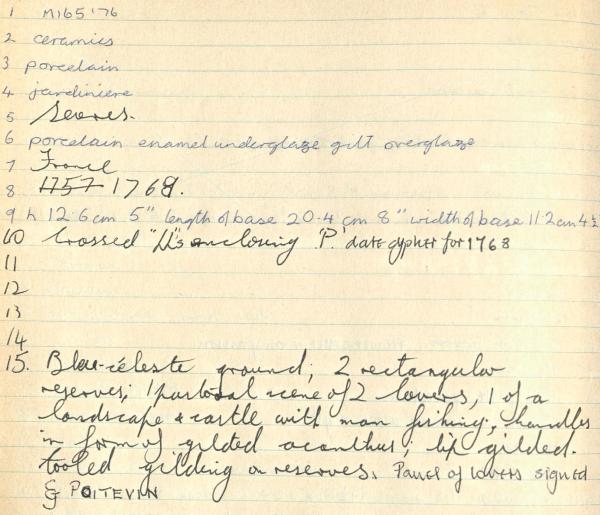 1 M165'76
2 ceramics
3 porcelain
4 jardiniere
5 Sevres.
6 porcelain enamel underglaze gilt overglaze
7 France
8 1757 1768.
9 h 12.6cm 5" length of base 20.4 cm 8" width of base 11.2cm 4½
10 Crossed "L"s enclosing 'P.' date cypher for 1768
11
12
13
14
15. Bleu-céleste ground; 2 rectangular
reserves; 1 pastoral scene of 2 lovers, 1 of a
landscape & castle with man fishing; handles
in form of gilded acanthus; lip gilded.
tooled gilding on reserves. Panel of lovers signed
G POITEVIN